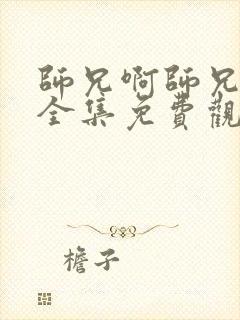 師兄啊師兄
全集免費觀
檐子